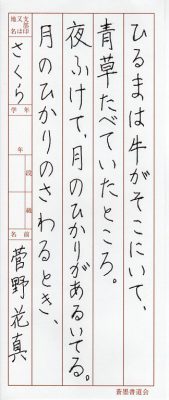 ひるまは牛がそこにいて、
青草たべていたところ。
夜ふけて、月のひかりがあるいてる。
月のひかりのさわるとき、
支部印
又は
地名
さくら
学年
年
段級
名前
菅野花真
蒼墨書道会